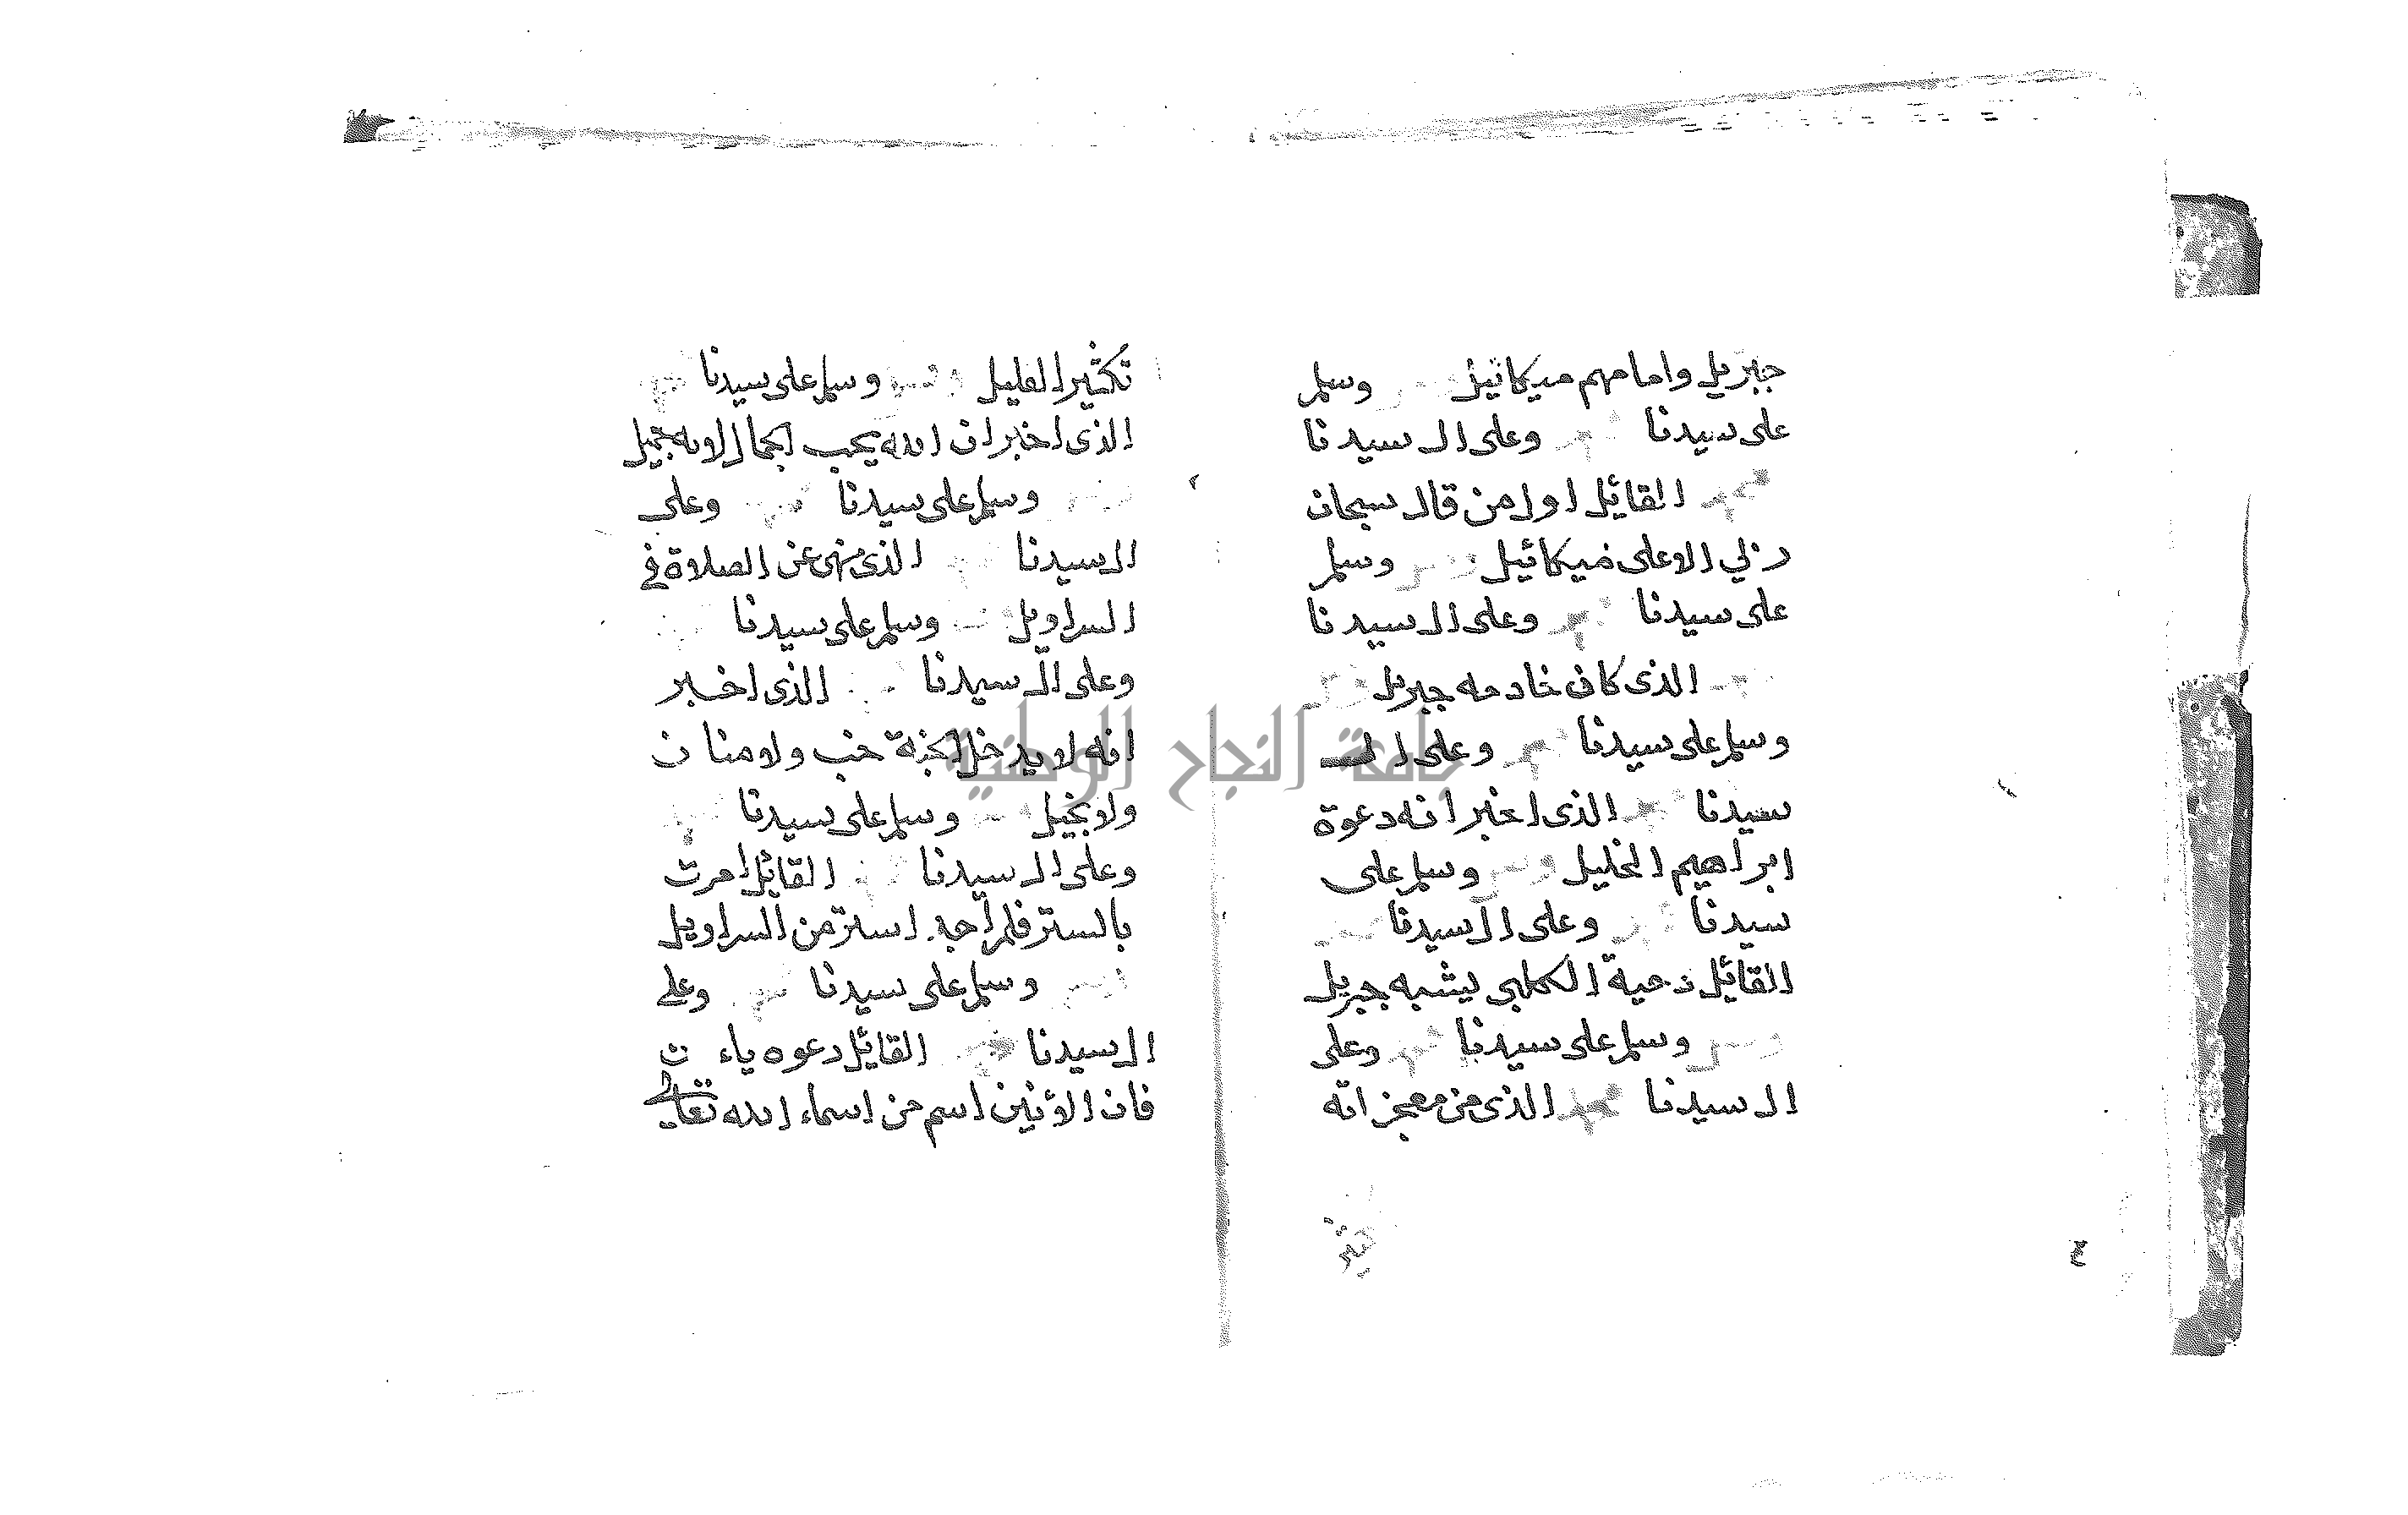 جبريل وامامهم ميكائيل وسلم
على سيدنا محمد وعلى ال سيدنا
محمد القائل اول من قال سبحان
ربي الاعلى ميكائيل وسلم
على سيدنا محمد وعلى ال سيدنا
الذى كان خادمه جبريل
وسلم على سيدنا وعلى ال
سيدنا محمد الذى اخبر انه دعوة
ابراهيم الخليل وسلم على
سيدنا وعلى ال سيدنا
القائل دحية الكلبى يشبه جبريل
وسلم على سيدنا محمد وعلى
ال سيدنا محمد الذى من معجزاته
تكثير
تكثير القليل وسلم على سيدنا
الذى اخبر ان الله يحب الجمال لانه جميل
وسلم على سيدنا وعلى
ال سيدنا الذى نهى عن الصلاة في
السراويل وسلم على سيدنا
وعلى ال سيدنا الذى اخبر
انه لا يدخل الجنة خب ولا منان
ولا بخيل وسلم على سيدنا
وعلى ال سيدنا القائل امرت
بالستر فلم اجد استر من السراويل
وسلم على سيدنا وعلى
ال سيدنا محمد القائل دعوه ياءن
فان الانين اسم من اسماء الله تعالى
جامعة النجاح الوطنية
٤